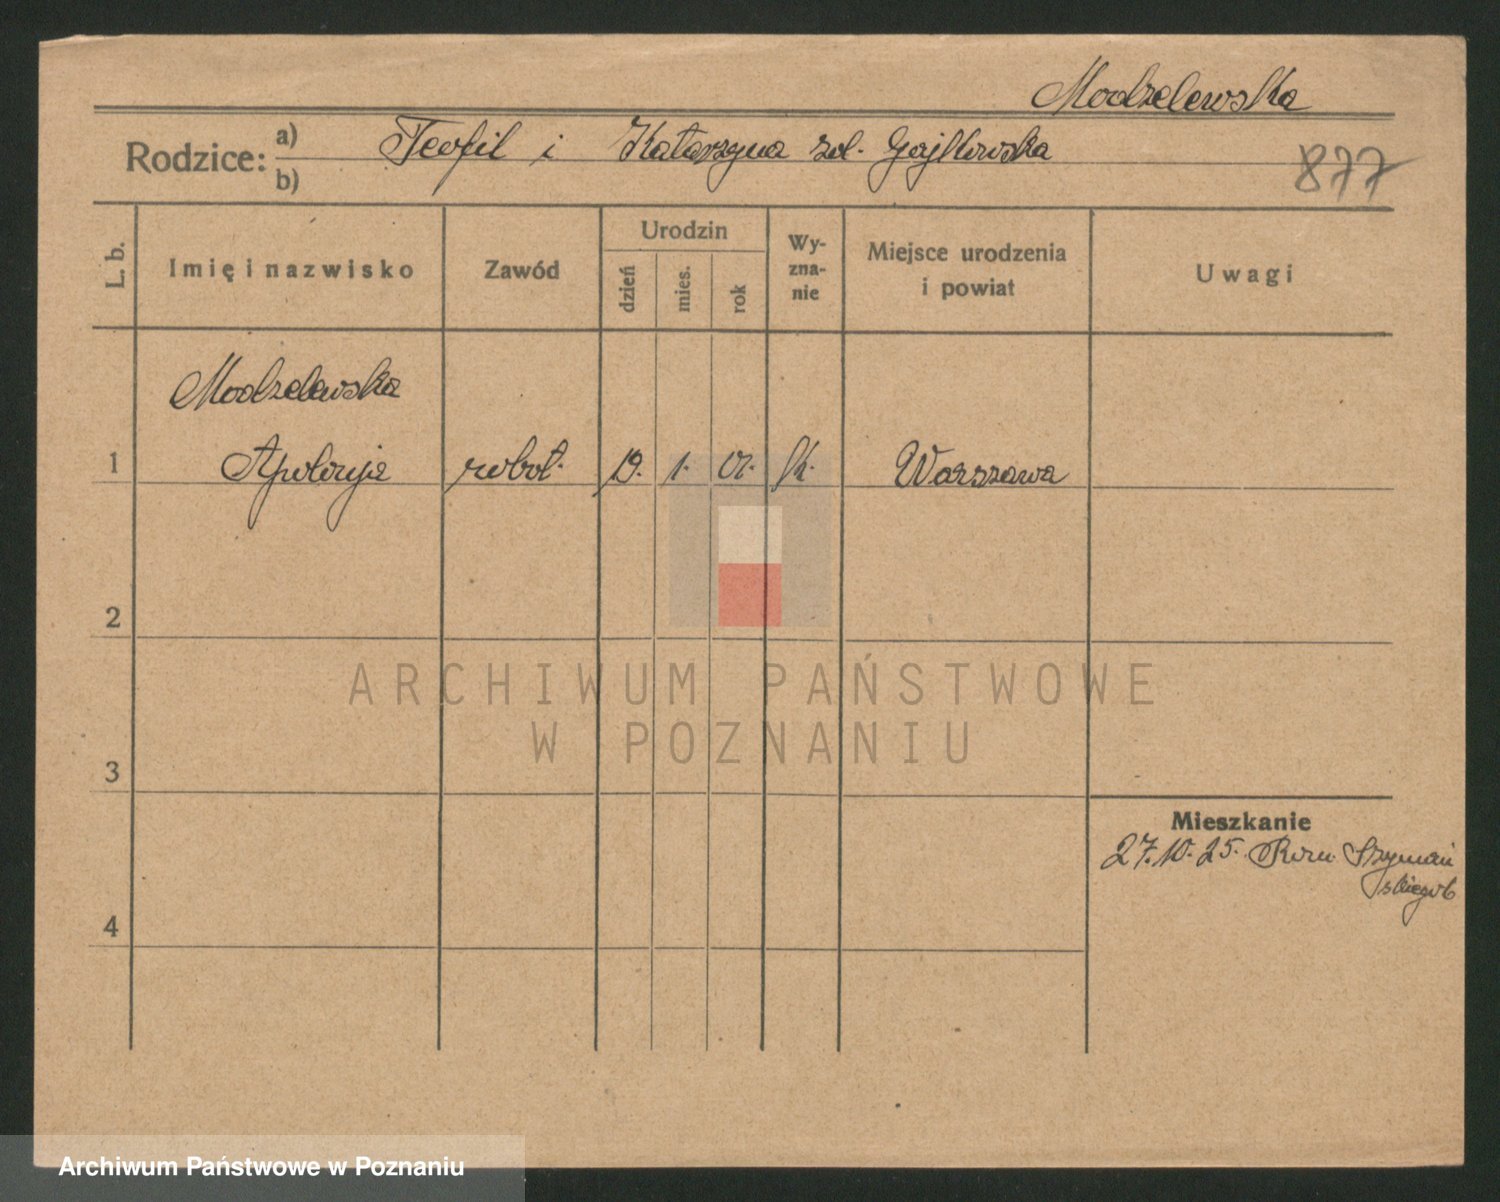 Modzelewska
Rodzice: a) b) Teofil i Katarzyna zd. Gajllowska
877
L. b.
Imię i nazwisko
Zawód
Urodzin
dzień
mies.
rok
Wy-
zna-
nie
Miejsce urodzenia
i powiat
Uwagi
Modzelewska
1 Apolonja robot. 19. 1. 01. k. Warszawa
2
3
4
Mieszkanie
27.10.25. Szymań
skiego 6
ARCHIWUM PAŃSTWOWE
W POZNANIU
Archiwum Państwowe w Poznaniu